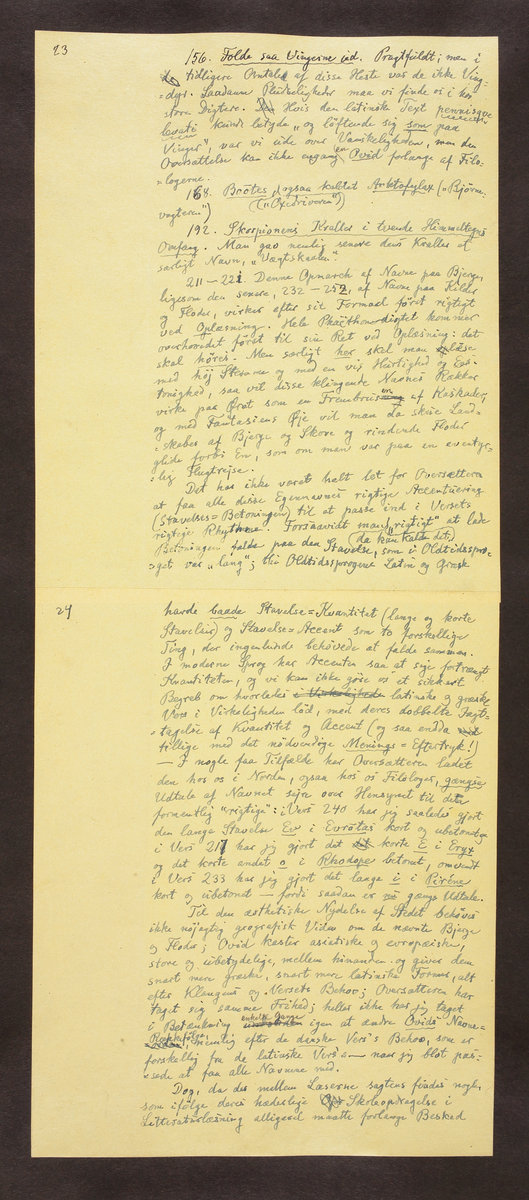 23
156. Folde saa Vingerne ud. Pragtfuldt; men i
de tidligere Omtaler af disse Heste var de ikke Ving-
store Digtere. Hvis den latinske Text pennisque
levati kunde betyde „og løftende sig som paa
Vinger", var vi ude over Vanskeligheden, men den
Oversættelse kan ikke engang en Ovid forlange af Filo-
=logerne.
168. Boötes, ogsaa kaldet Arktofylax („Bjørne-
vogteren") („Oxedriveren")
192. Skorpionens Kraller i tvende Himmeltegns
Omfang. Man gav nemlig senere dens Kraller et
særligt Navn, „Vægtskaalen".
211–221. Denne Opmarch af Navne paa Bjerge,
ligesom den senere, 232–252, af Navne paa Kilder
og Floder, virker efter sit Formaal først rigtigt
ved Oplæsning. Hele Phaëthondigtet kommer
overhovedet først til sin Ret ved Oplæsning: det
skal høres. Men særligt her skal man læse
med høj Stemme og med en vis Hurtighed og Ens-
tonighed, saa vil disse klingende Navnes Rækker
virke paa Øret som en Frembrusen af Kaskader,
og med Fantasiens Øje vil man da skue Land-
=skaber af Bjerge og Skove og rindende Floder
glide forbi En, som om man var paa en eventyr-
=lig Flugtrejse.
Det har ikke været helt let for Oversætteren
at faa alle disse Egennavnes rigtige Accentuering
(Stavelses=Betoningen) til at passe ind i Versets
rigtige Rhythme. Forsaavidt man (da kan kalde det) „rigtigt" at lade
Betoningen falde paa den Stavelse, som i Oldtidsspro-
=get var „lang"; thi Oldtidssprogene Latin og Græsk
24
havde baade Stavelse=Kvantitet (lange og korte
Stavelser) og Stavelse=Accent som to forskellige
Ting, der ingenlunde behøvede at falde sammen.
I moderne Sprog har Accenten saa at sige fortrængt
Kvantiteten, og vi kan ikke gøre os et sikkert
Begreb om hvorledes i Virkeligheden latinske og græske
Vers i Virkeligheden lød, med deres dobbelte Iagt-
=tagelse af Kvantitet og Accent (og saa endda
tillige med det nødvendige Menings=Eftertryk!)
— I nogle faa Tilfælde har Oversætteren ladet
den hos os i Norden, ogsaa hos os Filologer, gængse
Udtale af Navnet sejre over Hensynet til det
formentlig „rigtige": i Vers 240 har jeg saaledes gjort
den lange Stavelse Eu i Evrótas kort og ubetonet, og
i Vers 217 har jeg gjort det korte E i Eryx
og det korte andet o i Rhodope betonet, omvendt
i Vers 233 har jeg gjort det lange i i Piréne
kort og ubetonet — fordi saadan er gængs Udtale.
Til den æsthetiske Nydelse af Stedet behøves
ikke nøjagtig geografisk Viden om de nævnte Bjerge
og Floder; Ovid kaster asiatiske og evropæiske,
store og ubetydelige, mellem hinanden og giver dem
snart mere græske, snart mere latinske Former, alt
efter Klangens og Versets Behov; Oversætteren har
taget sig samme Frihed; heller ikke har jeg taget
i Betænkning enkelte Gange igen at ændre Ovids Navne=
Rækkefølge, nemlig efter de danske Vers's Behov, som er
forskellig fra de latinske Vers — naar jeg blot pas-
=sede at faa alle Navnene med.
Dog, da der mellem Læserne sagtens findes nogle,
som ifølge deres hæderlige Skoleopdragelse i
Litteraturlæsning alligevel maatte forlange Besked